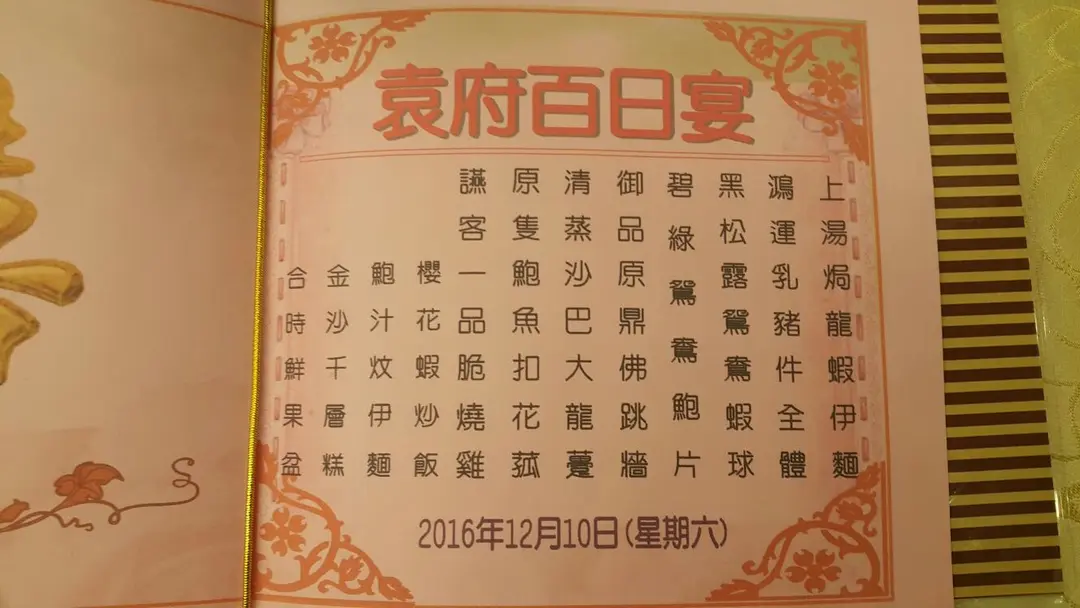 袁府百日宴
上湯焗龍蝦伊麵
鴻運乳豬件全體
黑松露鴛鴦蝦球
碧綠鴛鴦鮑片
御品原鼎佛跳牆
清蒸沙巴大龍躉
原隻鮑魚扣花菰
讌客一品脆燒雞
櫻花蝦炒飯
鮑汁炆伊麵
金沙千層糕
合時鮮果盆
2016年12月10日(星期六)